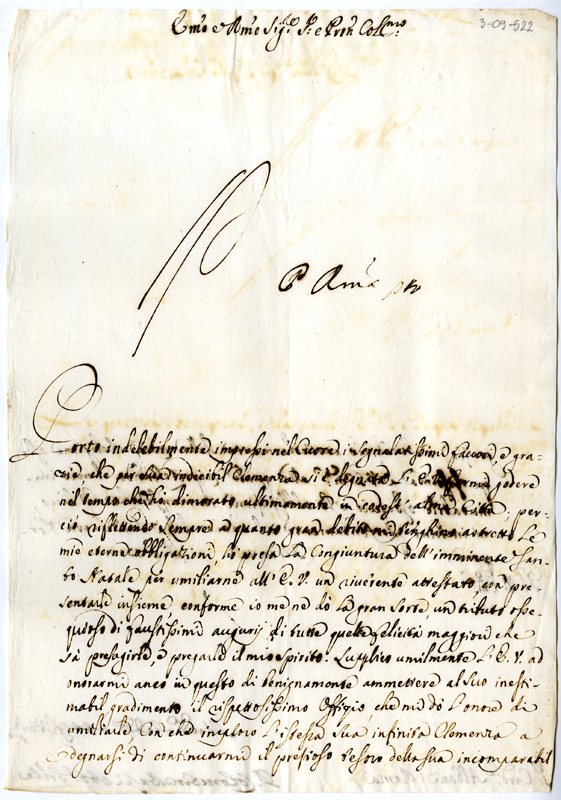 Em̃o e Rm̃o Sig.r P.e e Pron Col.mo
3-09-522
Porto indelebilmente impressi nel Cuore i segnalatissimi favori, e gra-
zie che per sua indicibil Clemenza si è degnata L'E.V. farmi godere
nel tempo che ho dimorato ultimamente in codesta alma Città: per-
ciò riflettendo sempre a quanto gran debito mi astretto Le
mie eterne obbligazioni, ho presa La Congiuntura dell'imminente San-
to Natale per umiliarne all'E.V. un riverente attestato, con pre-
sentarle insieme conforme io me ne dò la gran sorte, un tributo osse-
quioso di faustissimi augurij di tutte quelle felicità maggiori che
sà presagirle, e pregarle il mio spirito: Supplico umilmente L'E.V. ad
onorarmi anco in questo di benignamente ammettere al suo inesti-
mabil gradimento il rispettosissimo Offizio che mi dò L'onore di
umiliarle Con che imploro L'istessa Sua infinita Clemenza a
degnarsi di continuarmi il prezioso tesoro della sua incomparabil